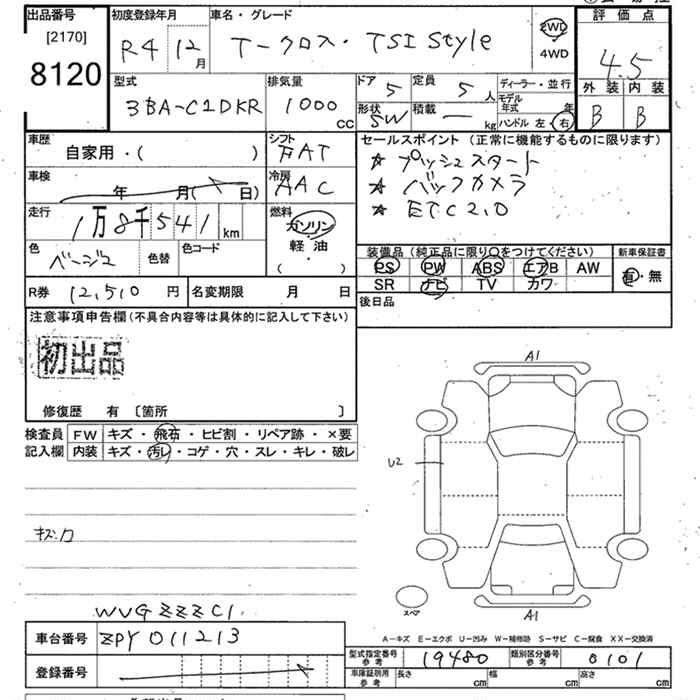 出品番号
[2170]
8120
初度登録年月
R4 12月
車名・グレード
T-クロス・TSI Style
2WD
・
4WD
評価点
4.5
外装 内装
B B
型式
3BA-C1DKR
排気量
1000 cc
ドア
5
定員
5人
形状
SW
積載
— kg
ディーラー・並行
モデル年式 年
ハンドル 左・右
車歴
自家用・( )
シフト
FAT
車検
年 月( 日)
冷房
AAC
走行
1万8千541 km
燃料
ガソリン
・
軽・油
・
( )
色
ベージュ
色替
色コード
セールスポイント(正常に機能するものに限ります)
★ プッシュスタート
★ バックカメラ
★ ETC2.0
装備品(純正品に限り○をつけてください)
新車保証書
PS PW ABS エアB AW
SR ナビ TV カワ
有・無
後日品
R券 12,510 円
名変期限 月 日
注意事項申告欄(不具合内容等は具体的に記入して下さい)
初出品
修復歴 有 〔箇所 〕
検査員
記入欄
FW キズ・飛石・ヒビ割・リペア跡・×要
内装 キズ・汚レ・コゲ・穴・スレ・キレ・破レ
キズ.ワ
A1
U2
スペア
A1
A-キズ E-エクボ U-凹み W-補修跡 S-サビ C-腐食 XX-交換済
WVGZZZC1
車台番号
ZPY011213
登録番号
型式指定番号
参考
19480
類別区分番号
参考
0101
車庫証明用
参考
長さ cm
幅 cm
高さ cm